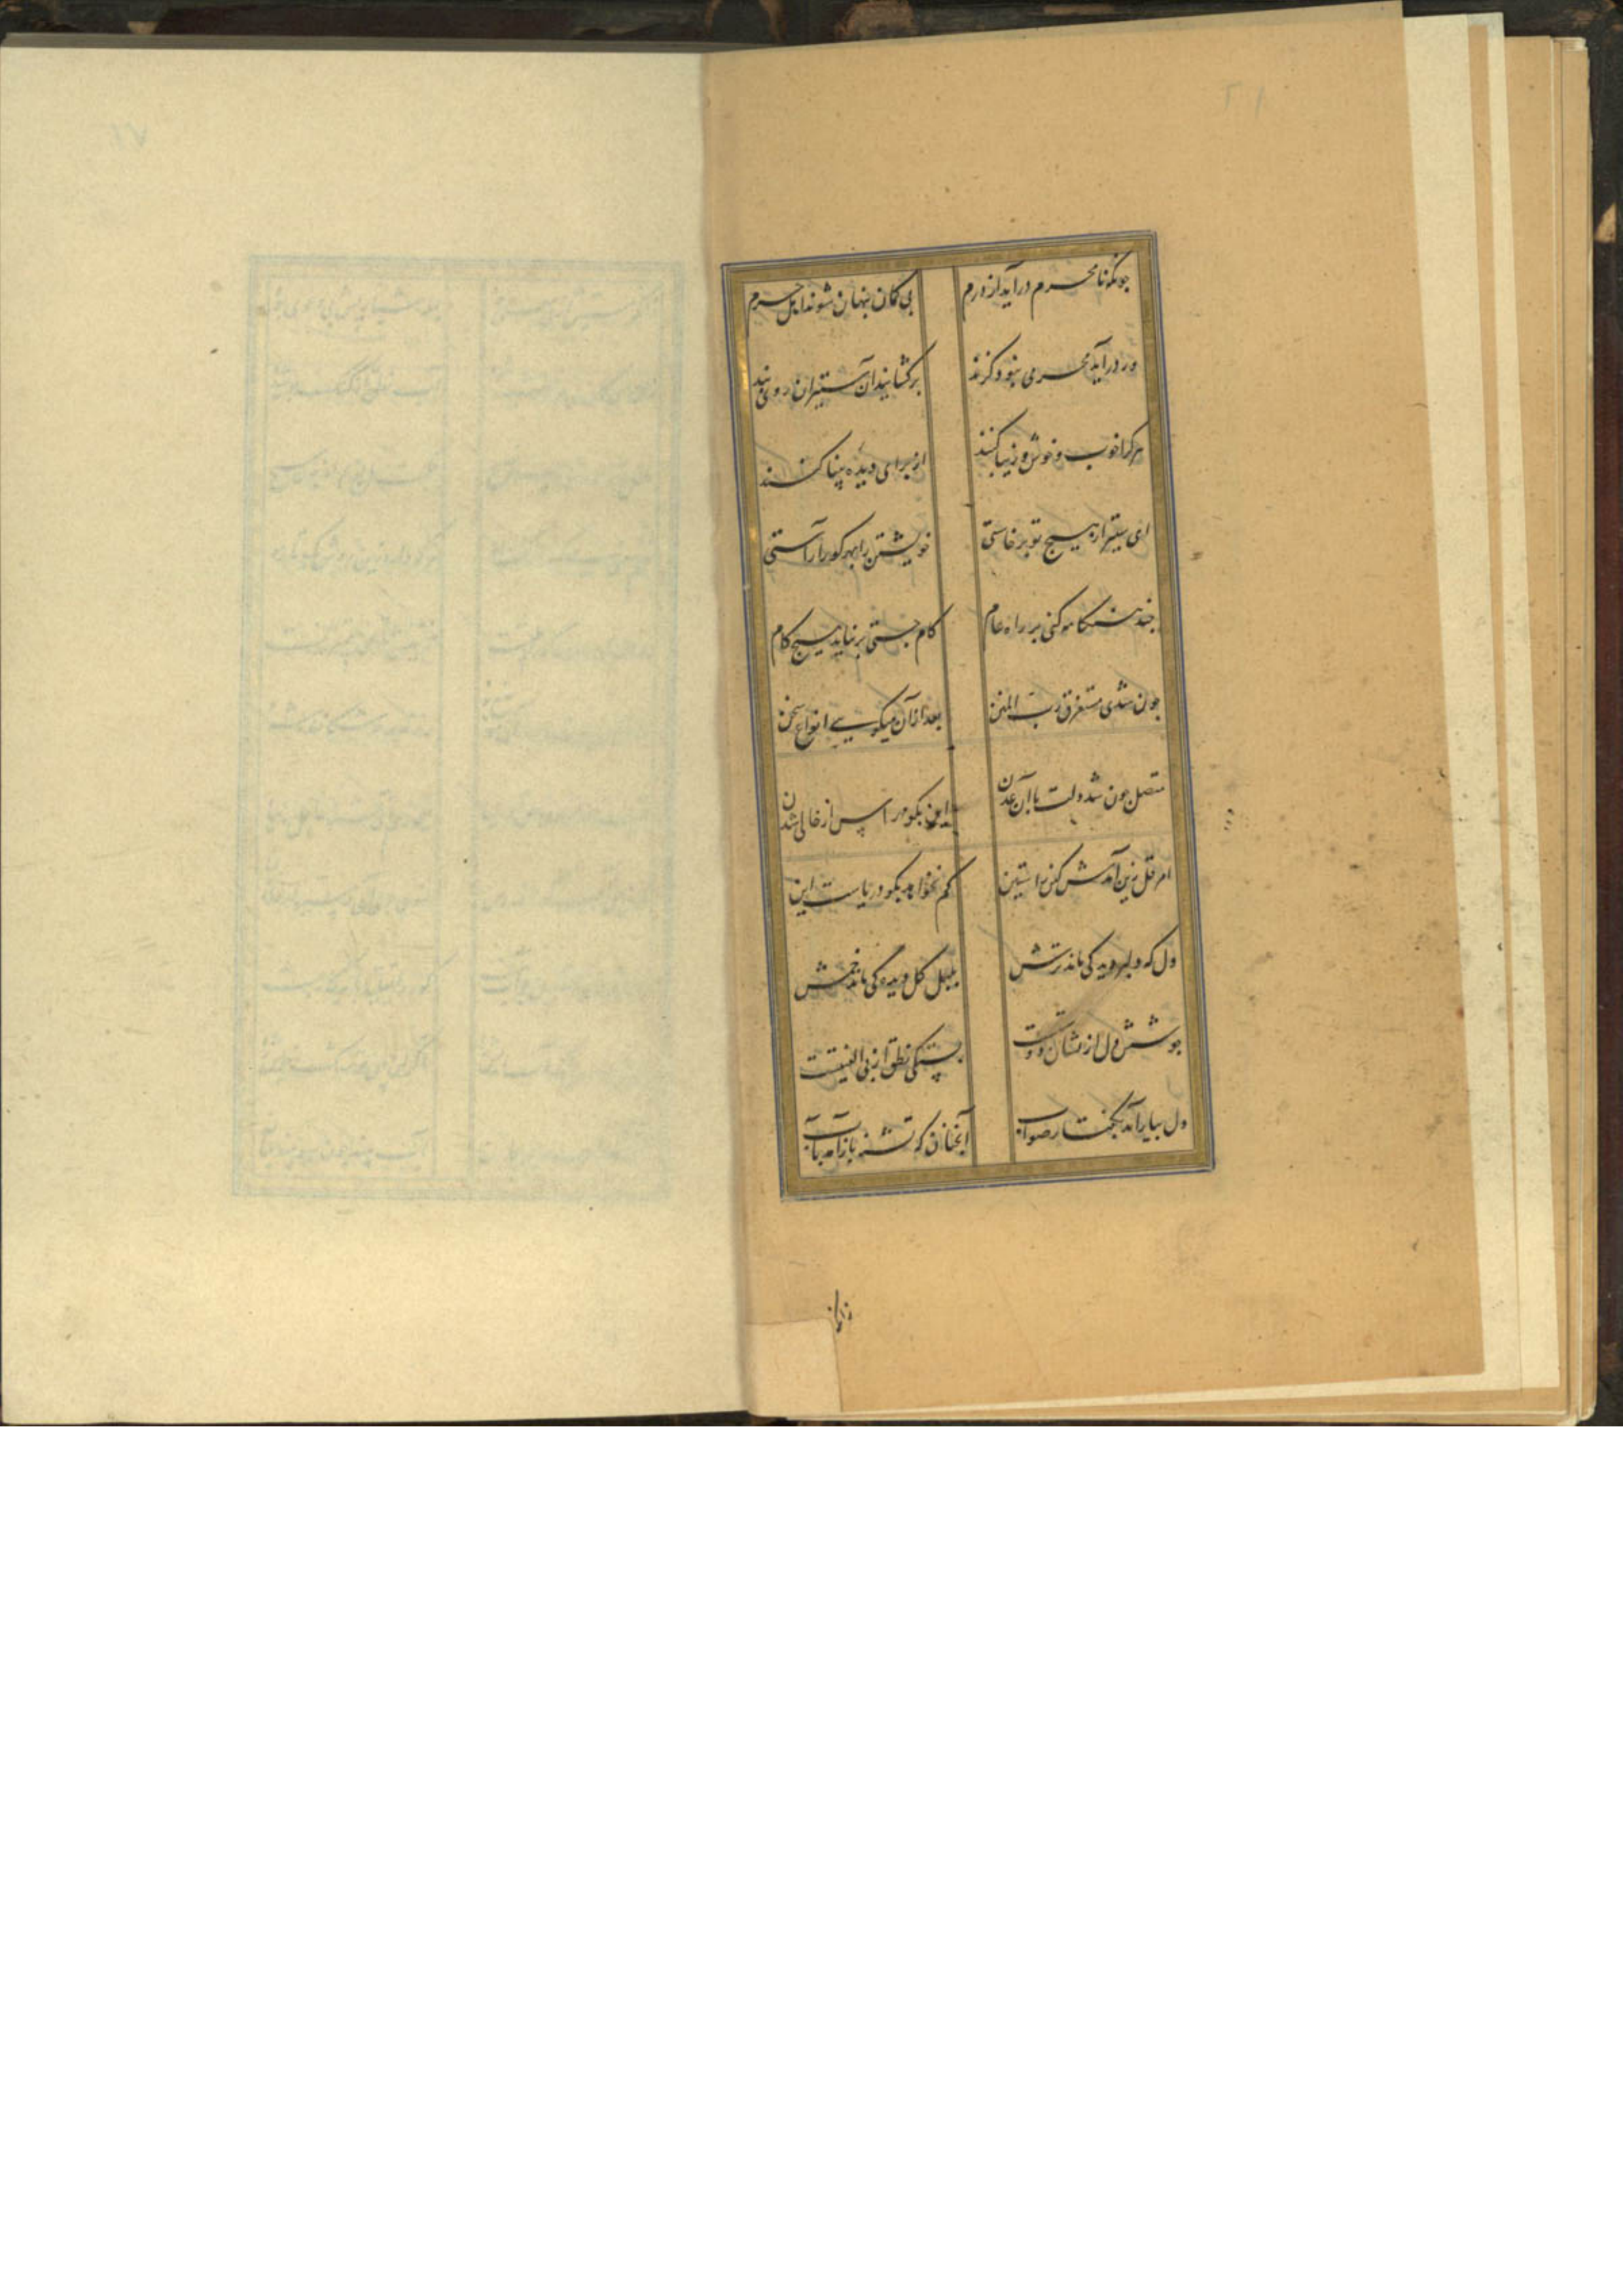 چونکه نامحرم درآید از درم بی گمان پنهان شوند اهل حرم
ور درآید محرمی بنود گزند برگشایند آن ستیران روی بند
هر کرا خوب و خوش و زیبا کنند از برای دیده بینا کنند
ای ستیر از هیچ تو برخاستی خویشتن را بهر کور آراستی
چند هنگامه کنی بر راه عام کام جستی بر نیاید هیچ کام
چون شدی مستغرق رب المنن بعد از آن میگویی انواع سخن
متصل چون شد دلت با آن عدن این بگو مر پس از خالی شدن
امر قل زین آمدش کای راستین کم نخواهد بگو دریاست این
دل که دلبر دید کی ماند ترش بلبلی گل دیده کی ماند خمش
جوشش دل از نشان بستگی نطق از بی الفتیست
دل بیارامد بگفتار صواب آنچنان که تشنه باز آمد بآب